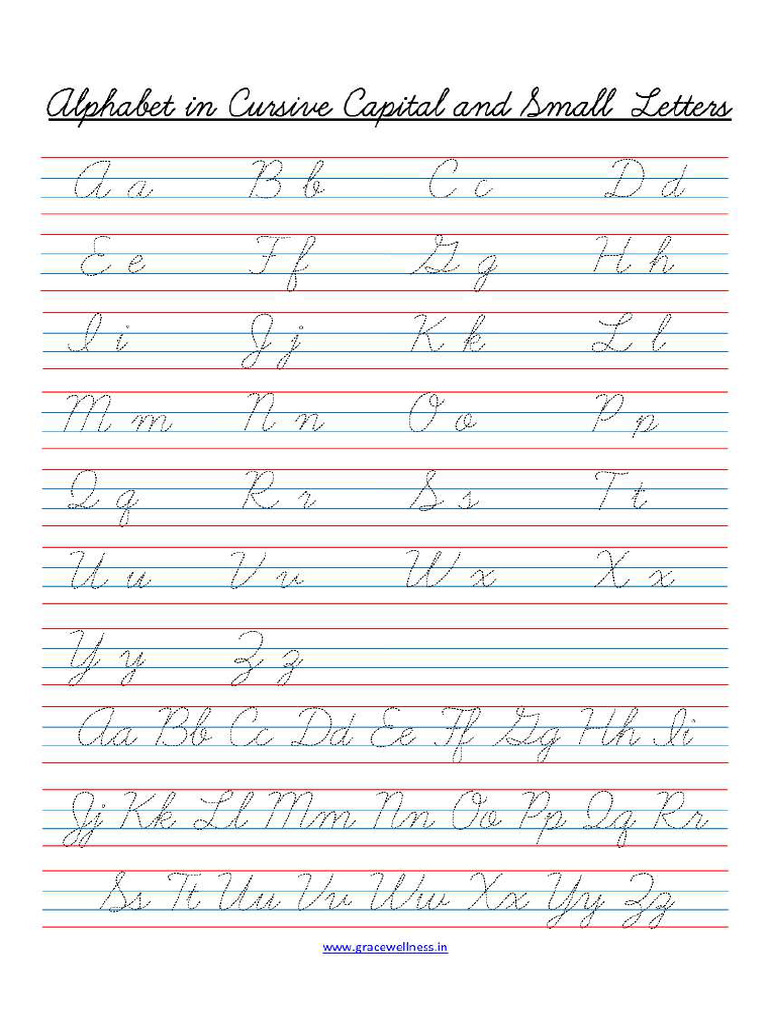 Alphabet in Cursive Capital and Small Letters
A a B b C c D d
E e F f G g H h
I i J j K k L l
M m N n O o P p
Q q R r S s T t
U u V v W x X x
Y y Z z
Aa Bb Cc Dd Ee Ff Gg Hh Ii
Jj Kk Ll Mm Nn Oo Pp Qq Rr
Ss Tt Uu Vv Ww Xx Yy Zz
www.gracewellness.in